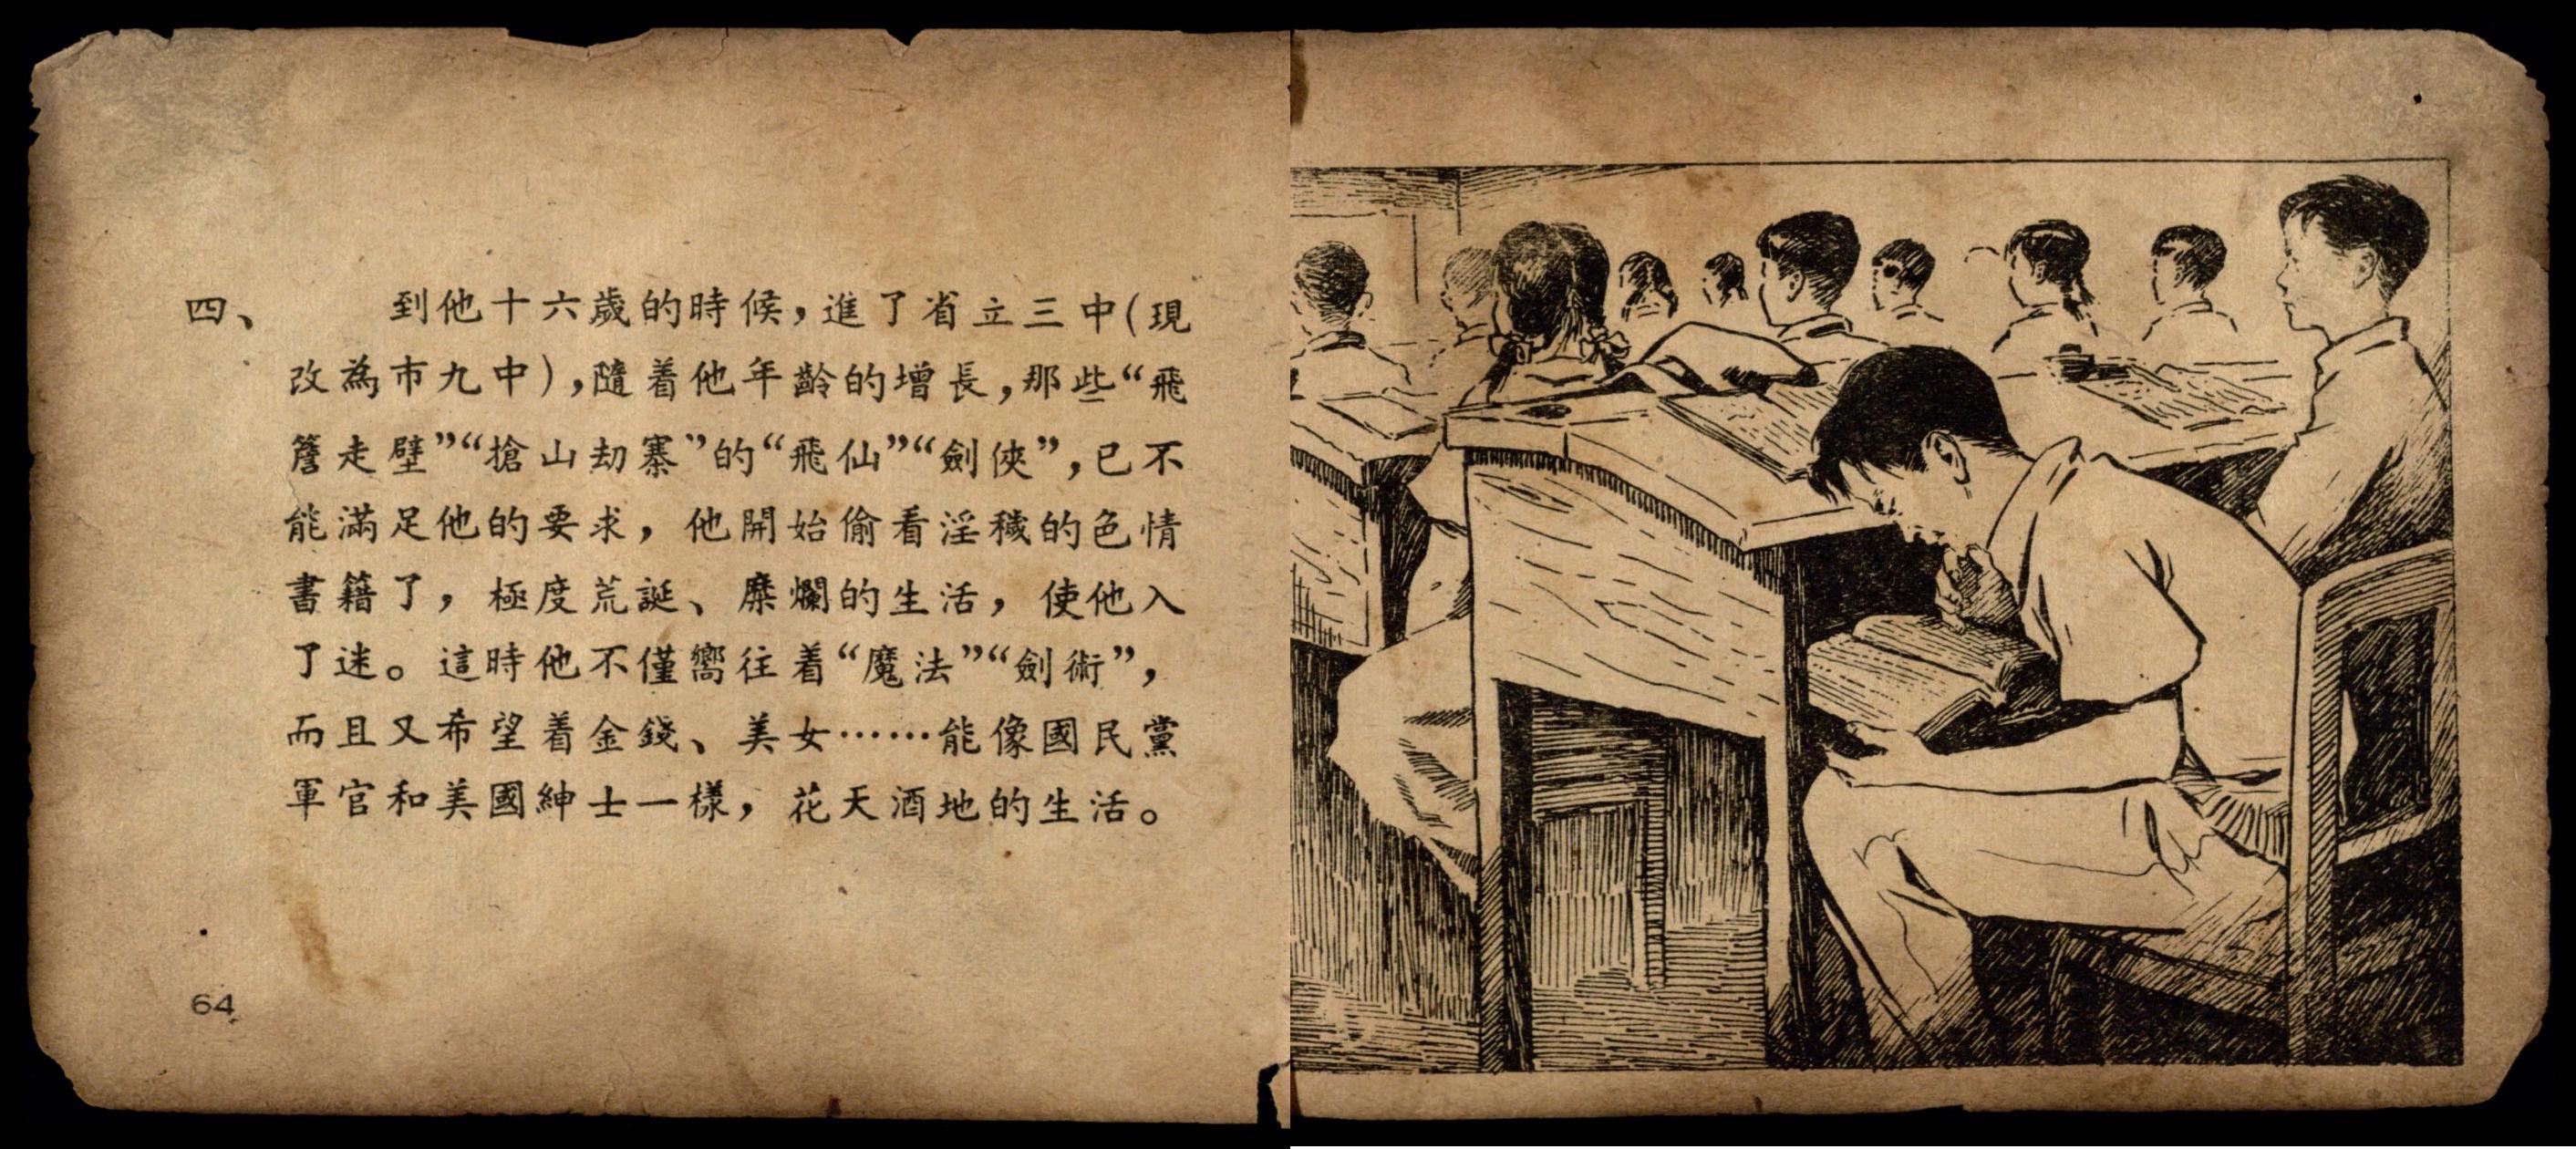 四、 到他十六歲的時候，進了省立三中(現
改為市九中)，隨着他年齡的增長，那些“飛
簷走壁”“搶山劫寨”的“飛仙”“劍俠”，已不
能滿足他的要求，他開始偷看淫穢的色情
書籍了，極度荒誕、糜爛的生活，使他入
了迷。這時他不僅嚮往着“魔法”“劍術”，
而且又希望着金錢、美女……能像國民黨
軍官和美國紳士一樣，花天酒地的生活。
64